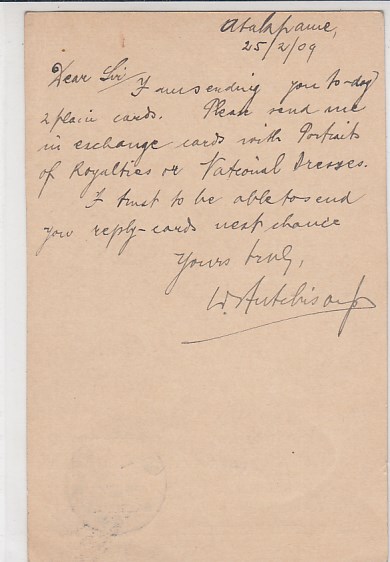 Atakpame,
25/2/09
Dear Sir I am sending you to-day
2 plain cards. Please send me
in exchange cards with Portraits
of Royalties or National Dresses.
I trust to be able to send
you reply-cards next chance
Yours truly,
W. Hutchison